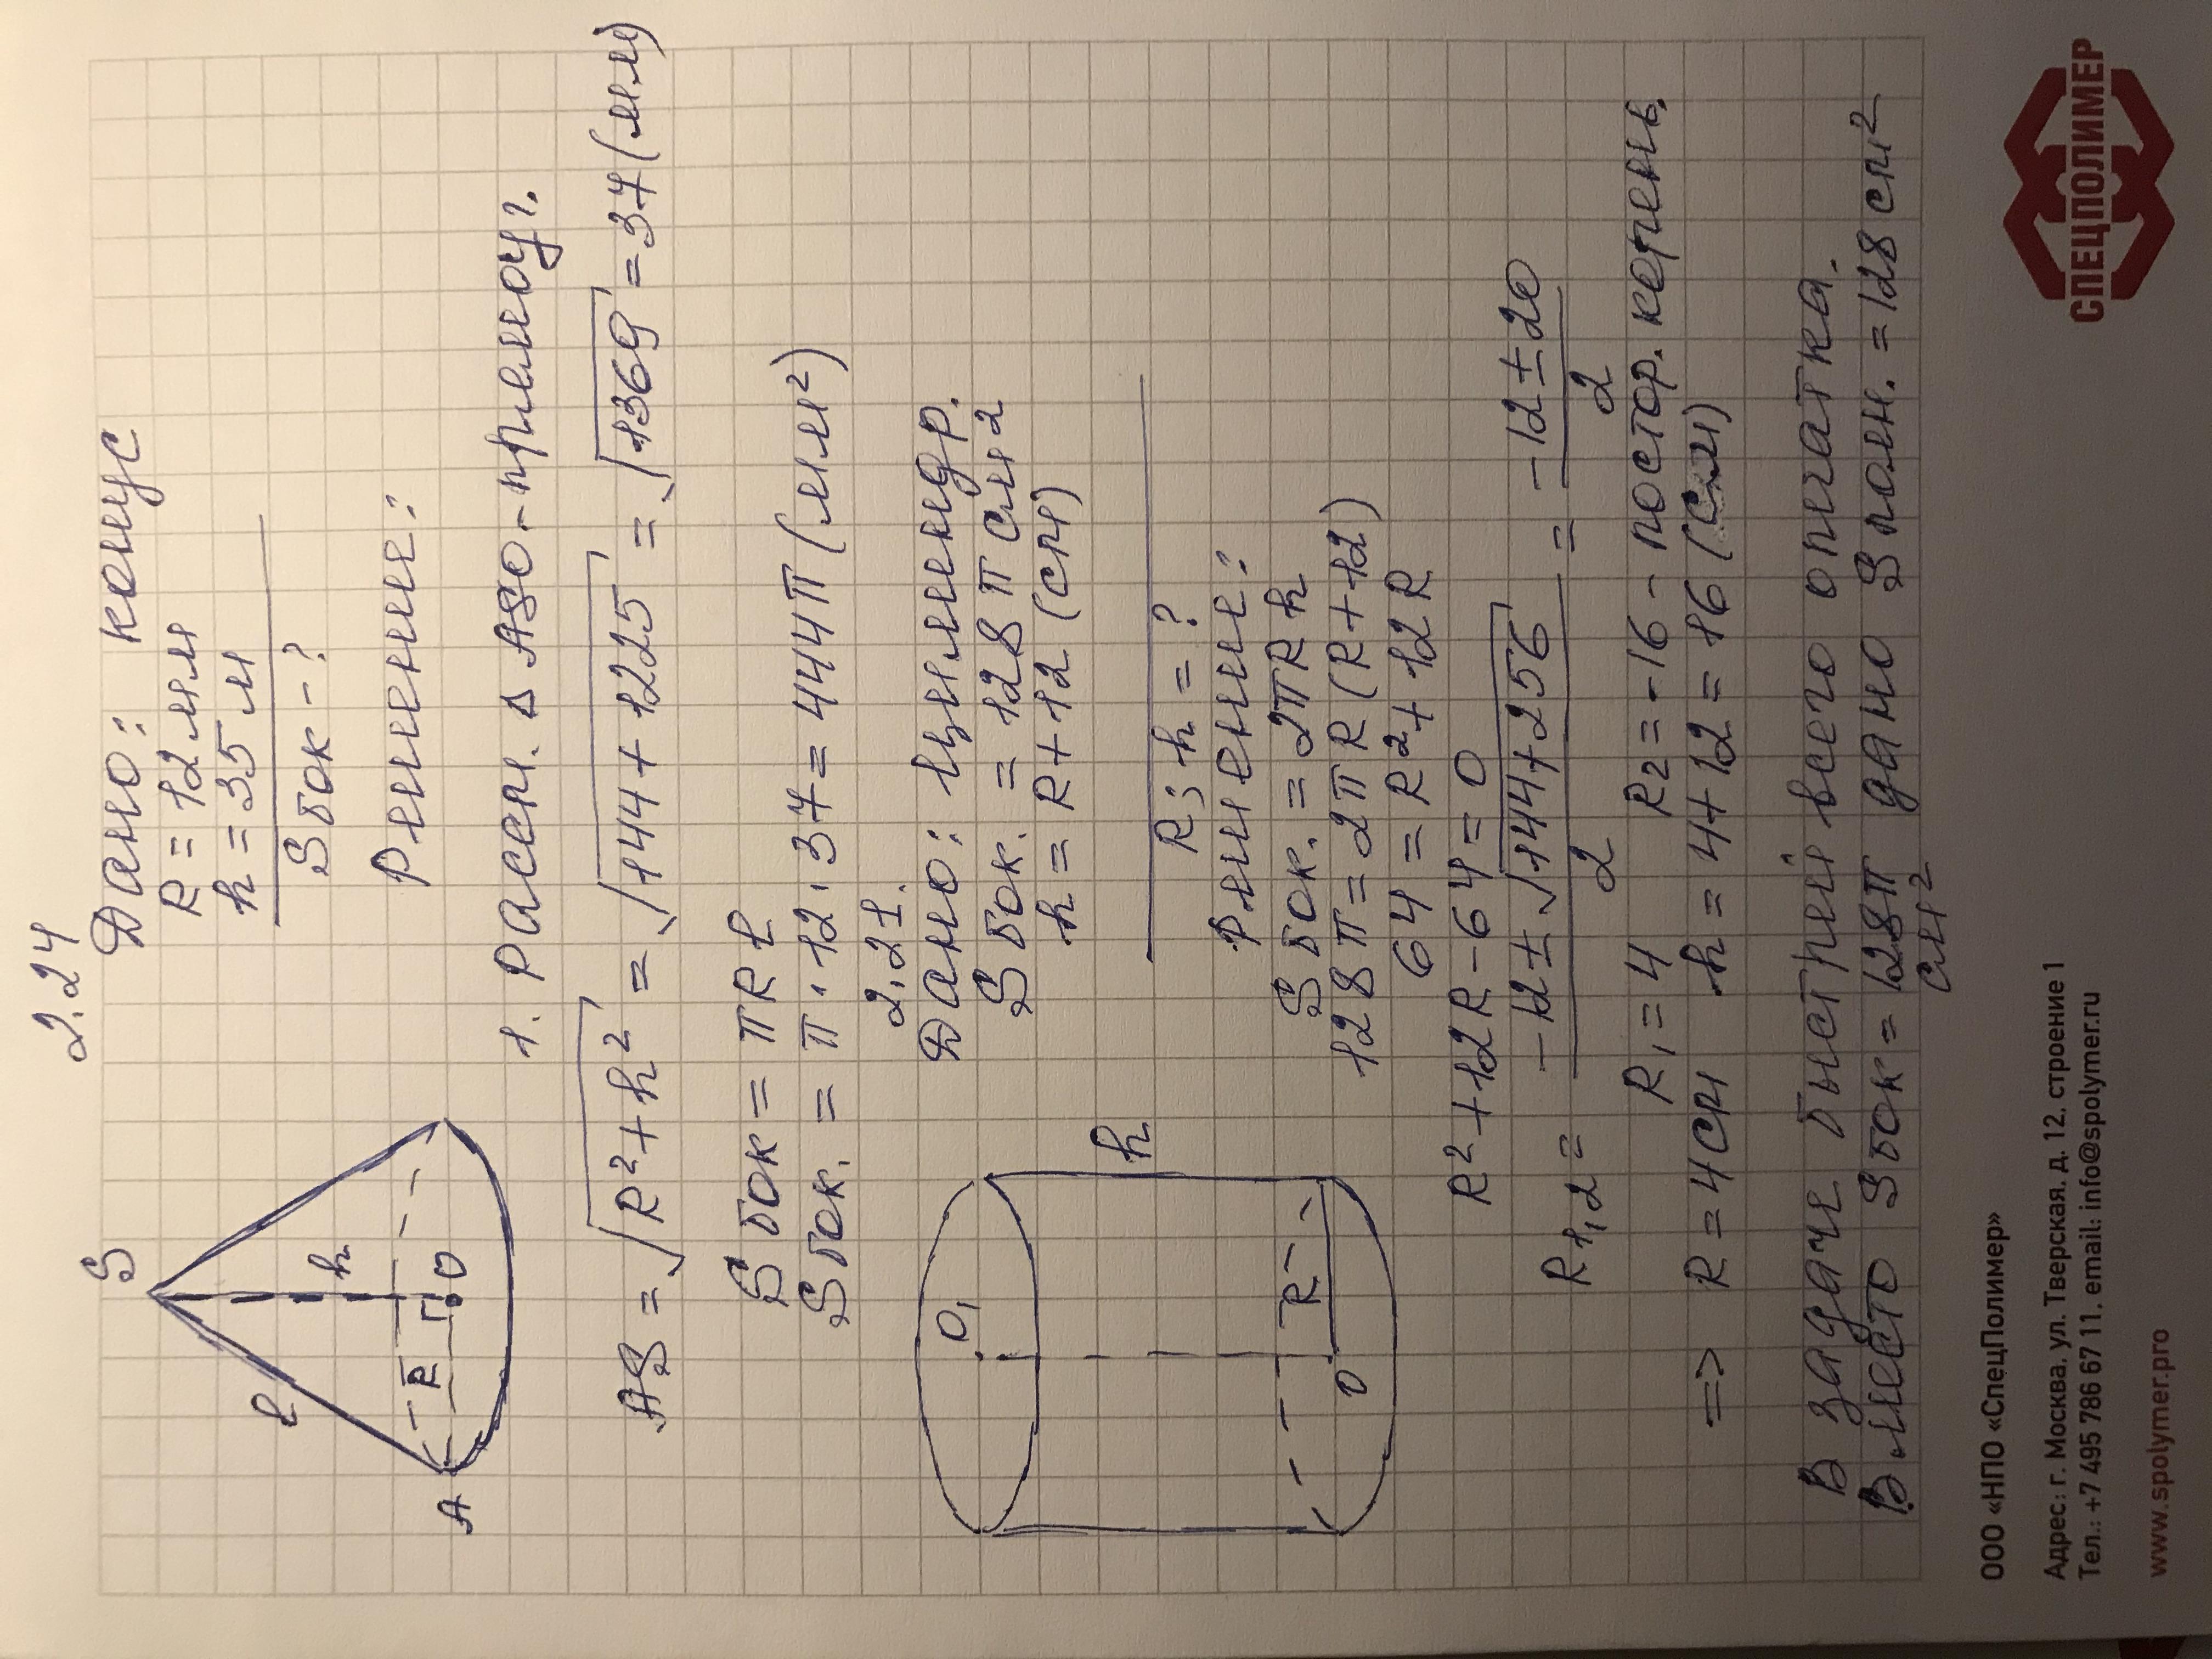 2.24
Дано: конус
R = 12 мм
h = 35 м
S бок - ?
Решение:
S
l
h
R
O
A
1. Рассм. Δ ASO - прямоуг.
AS = √R²+h² = √144+1225 = √1369 = 37 (мм)
S бок = πRl
S бок. = π·12·37 = 444π (мм²)
2.21.
Дано: цилиндр.
S бок. = 128π см²
h = R+12 (см)
R; h = ?
Решение:
O₁
h
R
O
S бок. = 2πRh
128π = 2πR(R+12)
64 = R²+12R
R²+12R-64=0
R₁,₂ = -12±√144+256 / 2 = -12±20 / 2
R₁ = 4 R₂ = -16 - постор. корень.
=> R = 4см h = 4+12 = 16 (см)
В задаче быстрей всего опечатка.
Вместо S бок = 128π см² дано S полн. = 128 см²
ООО «НПО «СпецПолимер»
Адрес: г. Москва, ул. Тверская, д. 12, строение 1
Тел.: +7 495 786 67 11, email: info@spolymer.ru
www.spolymer.pro
СПЕЦПОЛИМЕР